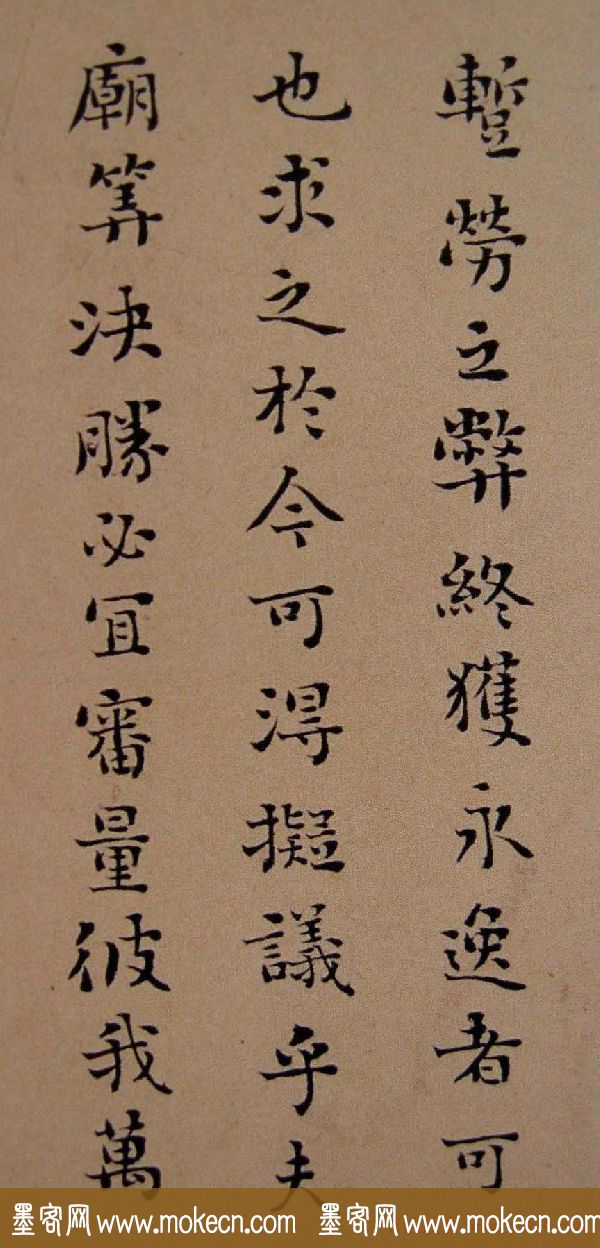 暫勞之弊終獲永逸者可
也求之於今可得擬議乎夫
廟筭決勝必宜審量彼我萬
墨客网 www.mokecn.com 墨客网 www.mokecn.com